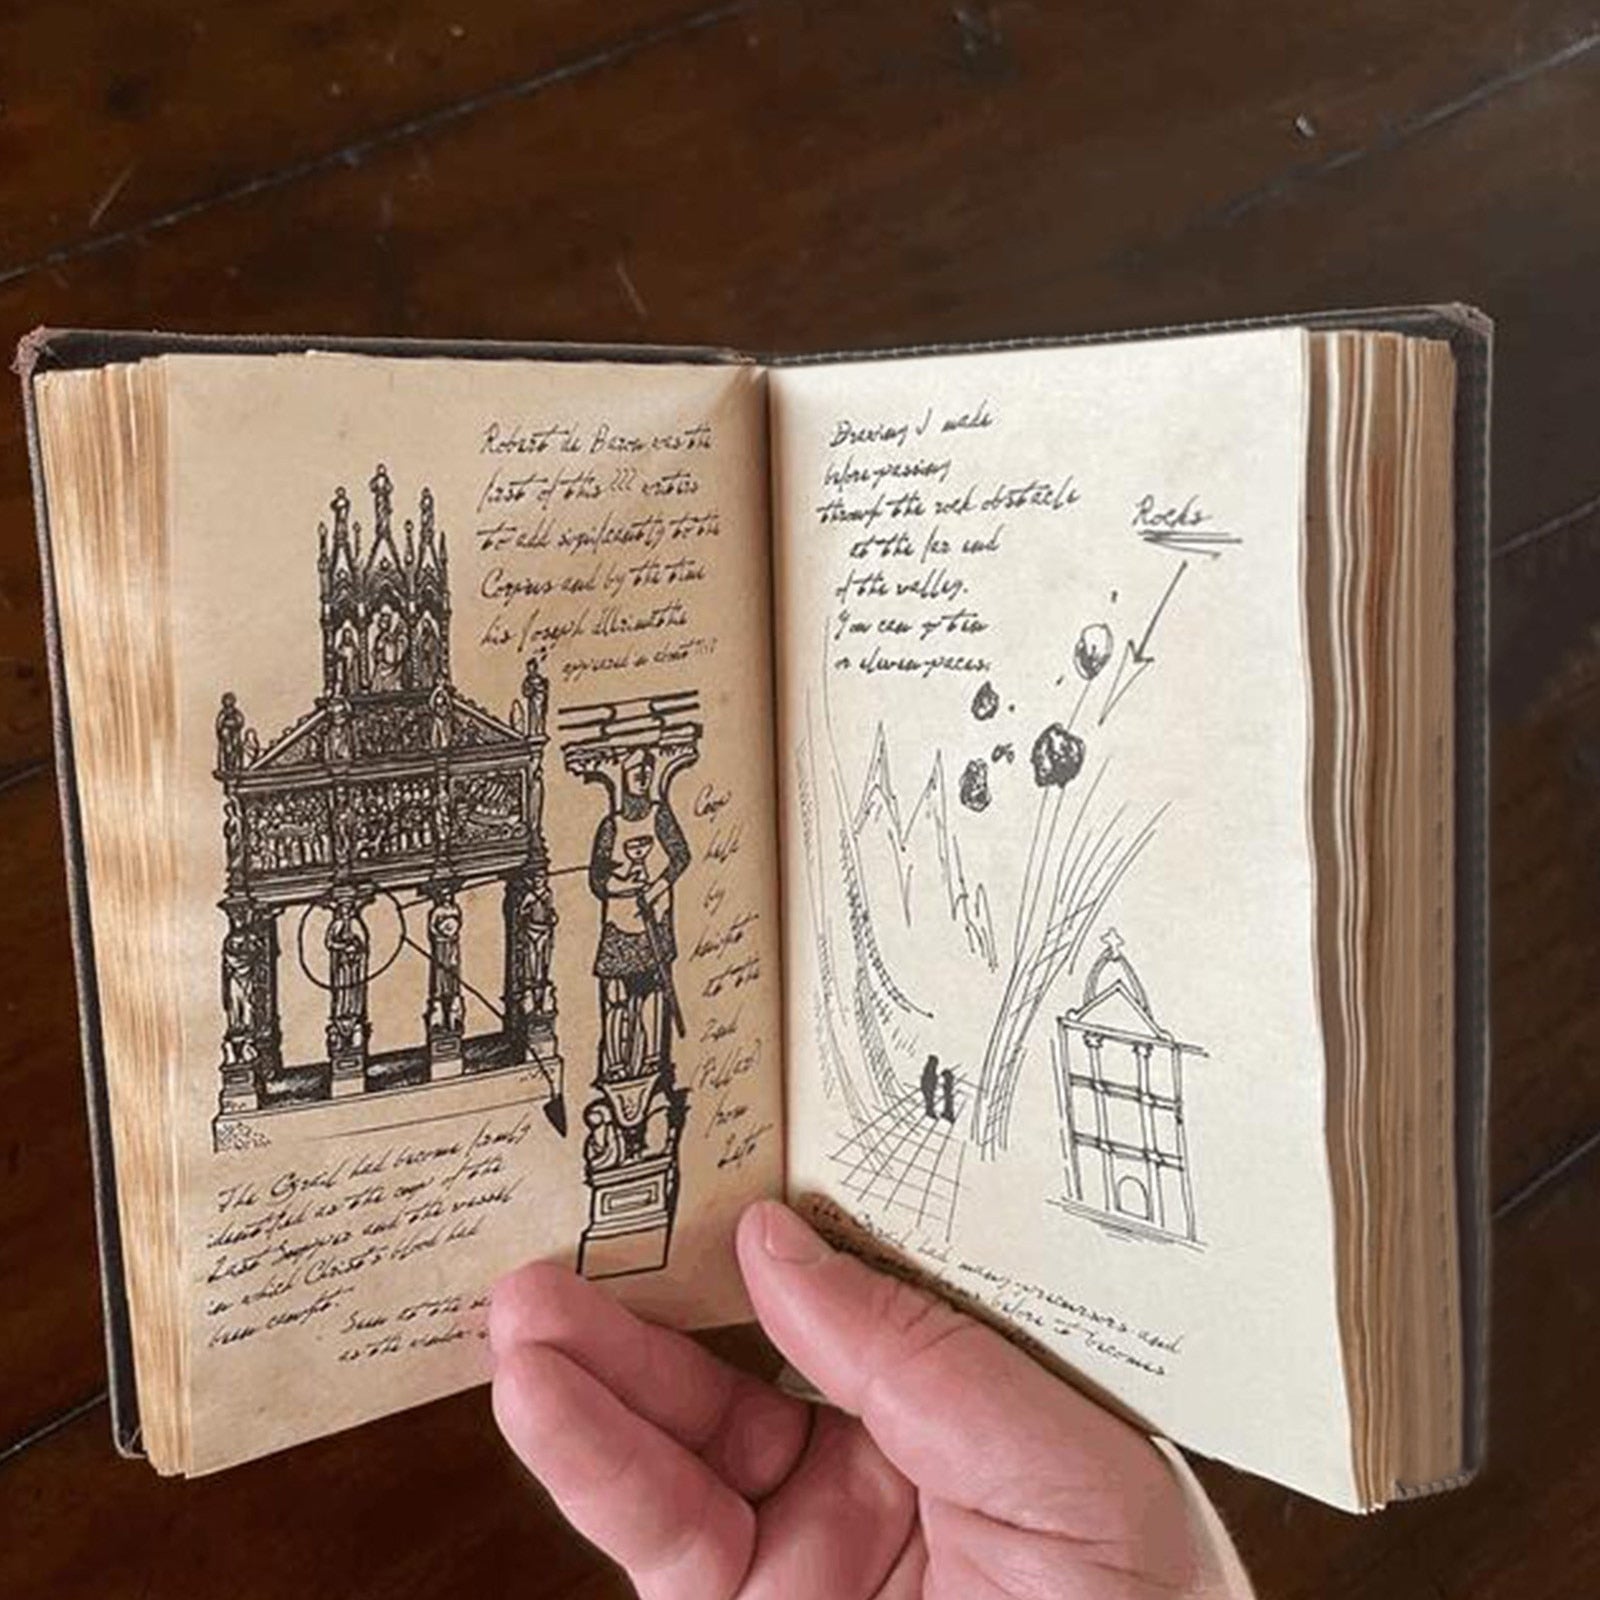 Robert de Boron was the
first of this ??? writers
to add significantly to the
Corpus and by the time
his Joseph
appeared in about
Cup
held
by
Knight
to the
2nd
(Pillar)
from
Left
The Grail had become firmly
identified as the cup of the
Last Supper and the vessel
in which Christ's blood had
been caught.
to the
as the
Drawing I made
before passing
through the rock obstacle
at the far end
of the valley.
You can go ten
or eleven paces.
Rocks
or
The Grail had many precursors and
before it becomes